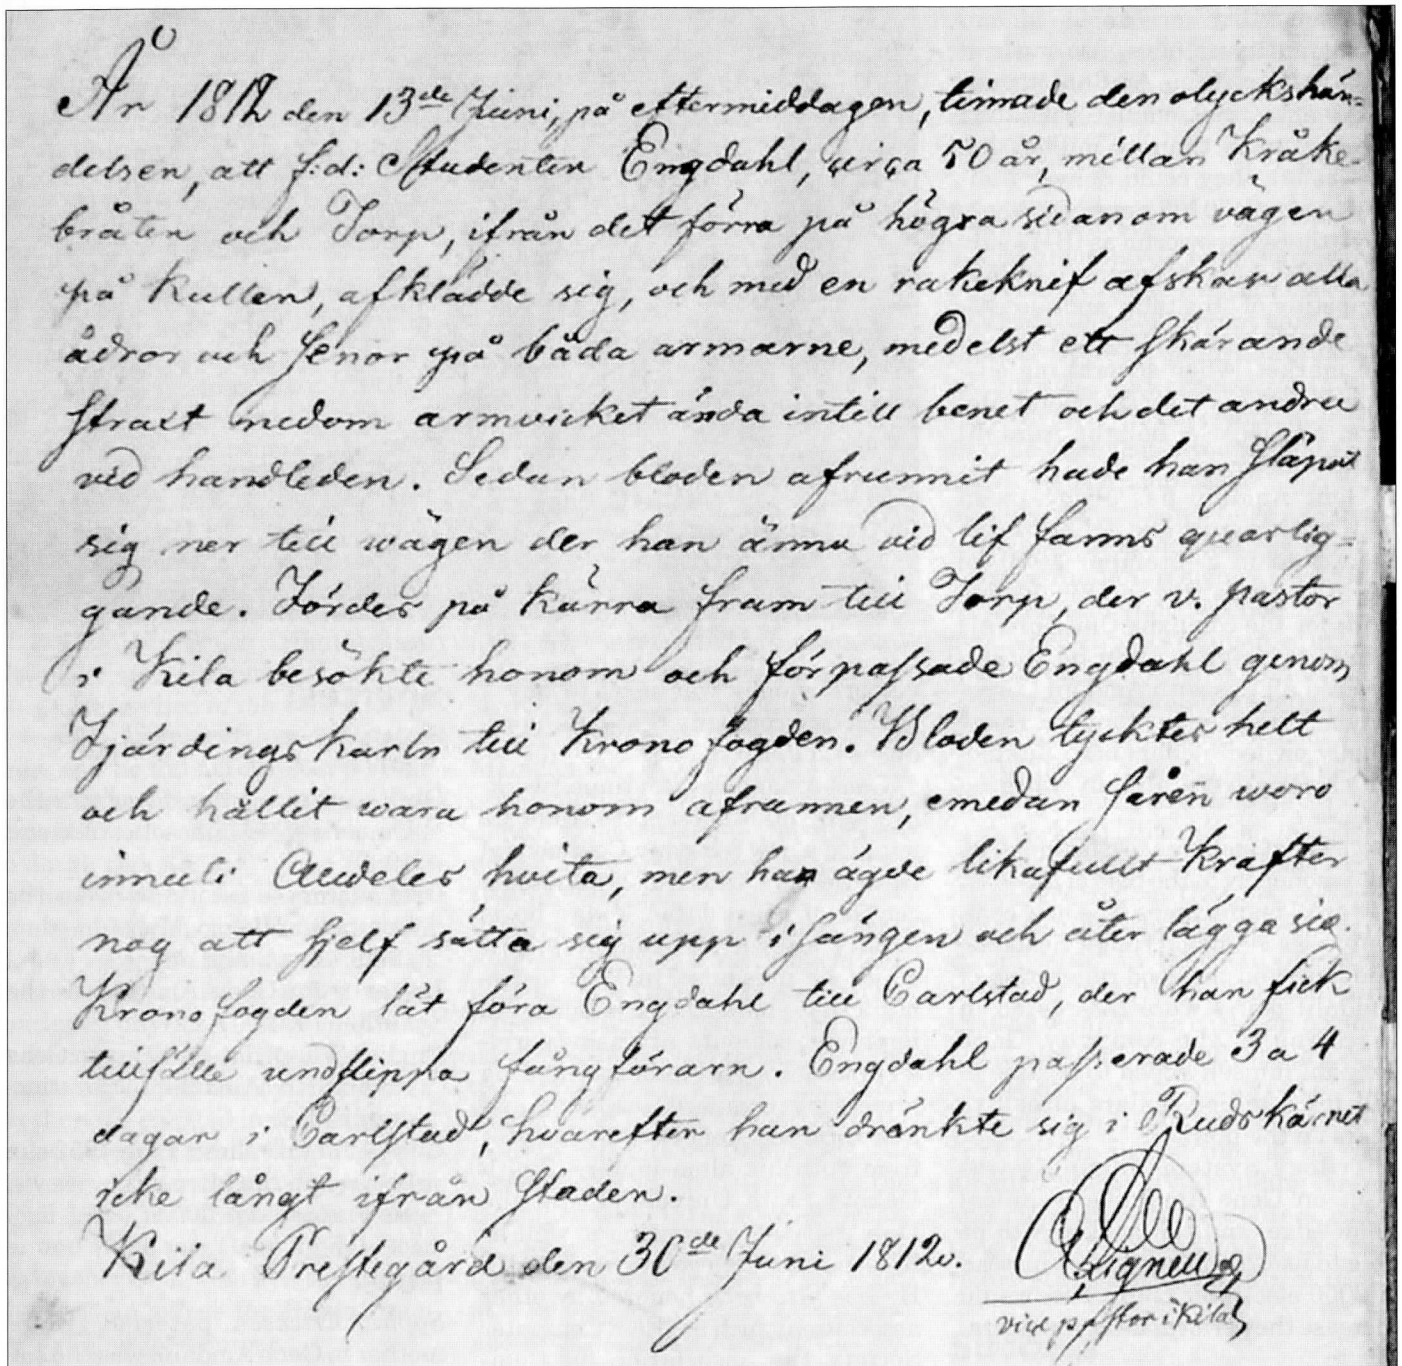 År 1812 den 13de Juni, på eftermiddagen, timade den olyckshän=
delsen, att f:d: Studenten Engdahl, circa 50 år, mellan Kråke-
bråten och Torp, ifrån det förra på högra sidan om vägen
på kullen, afklädde sig, och med en rakeknif afskar alla
ådror och senor på båda armarne, medelst ett skärande
straxt nedom armvecket ända intill benet och det andra
vid handleden. Sedan bloden afrunnit hade han släpat
sig ner till wägen der han ännu vid lif fanns quarlig=
gande. Fördes på kärra fram till Torp, der v. pastor
i Kila besökte honom och förpassade Engdahl genom
Fjärdingskarln till Kronofogden. Bloden tycktes helt
och hållit wara honom afrunnen, emedan såren woro
inneuti alldeles hvita, men han ägde likafullt krafter
nog att sjelf sätta sig upp i sängen och åter lägga sig.
Kronofogden lät föra Engdahl till Carlstad, der han fick
tillfälle undslippa fångförarn. Engdahl passerade 3 a 4
dagar i Carlstad, hvarefter han dränkte sig i Rudskärnet
icke långt ifrån Staden.
Kila Prestegård den 30de Juni 1812.
vice pastor i Kila